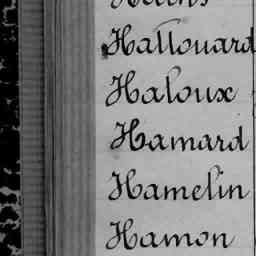 Hallouard
Haloux
Hamard
Hamelin
Hamon